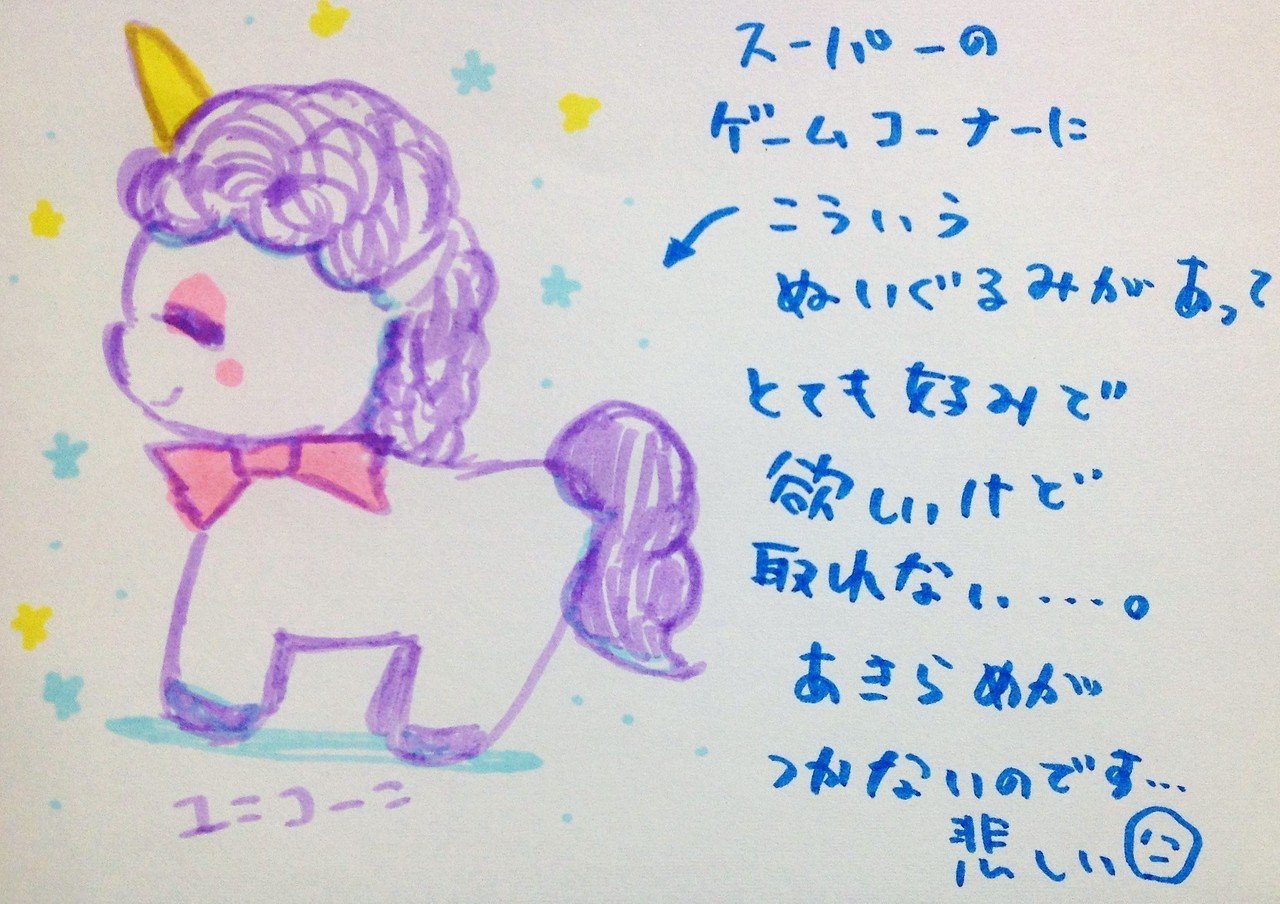 スーパーの
ゲームコーナーに
こういう
ぬいぐるみがあって
とても好みで
欲しいけど
取れない…。
あきらめが
つかないのです…
悲しい
ユニコーニ